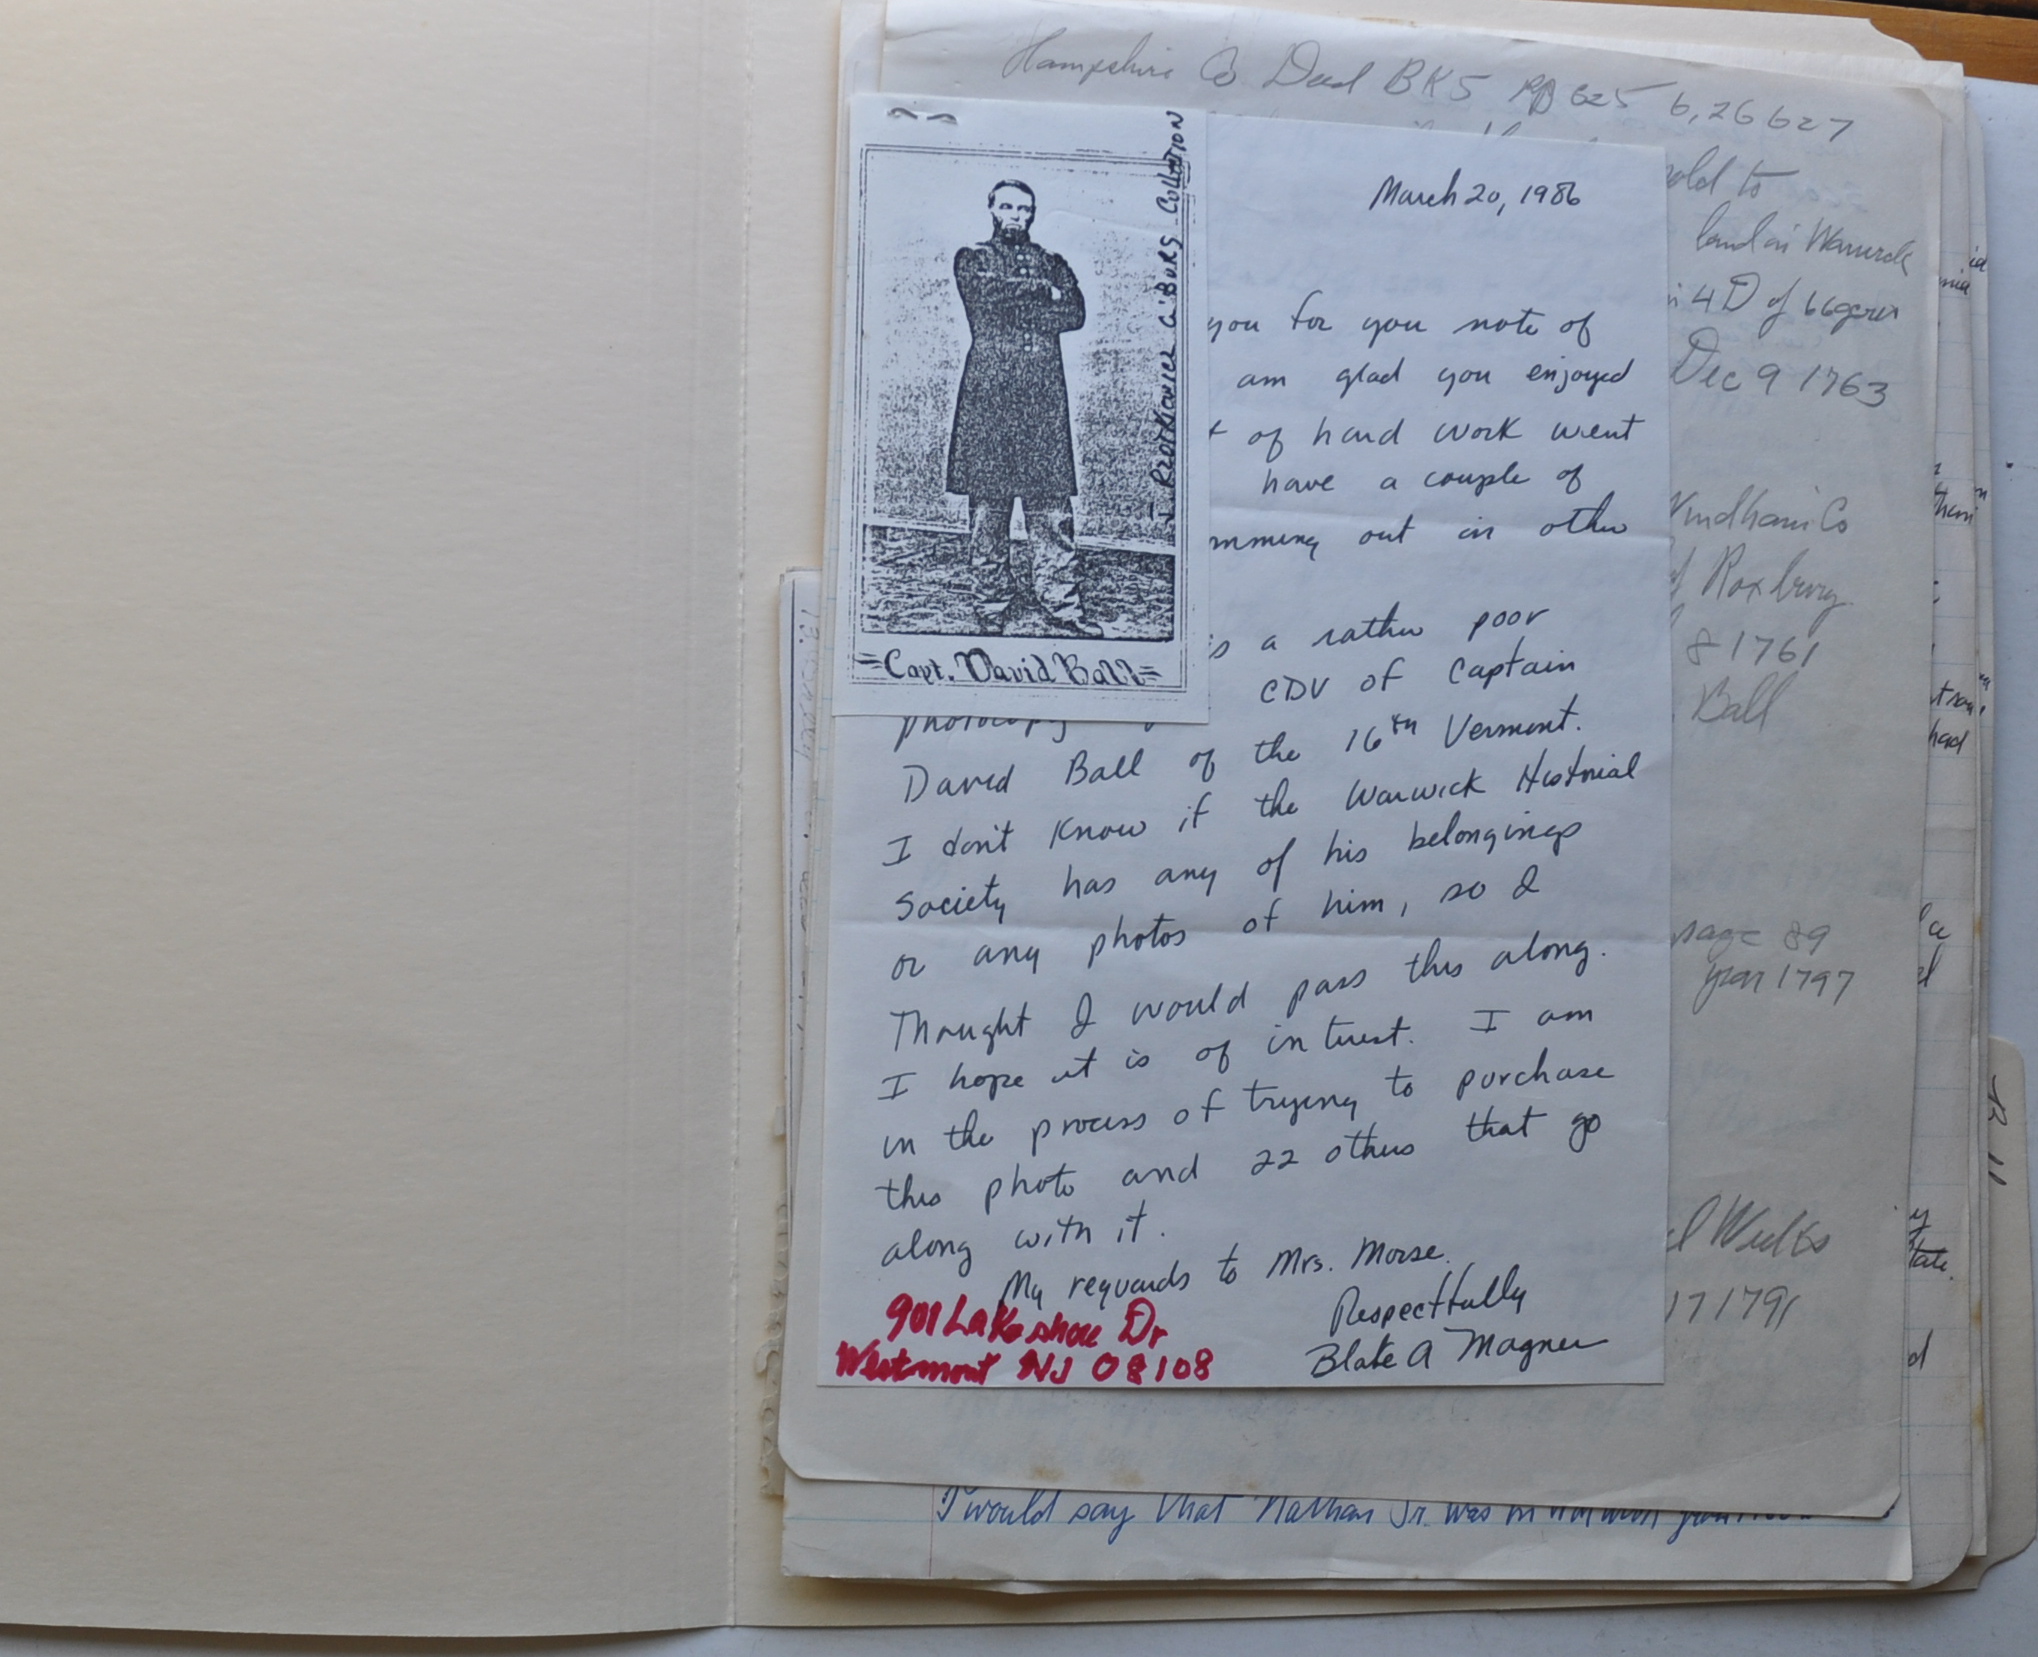 Hampshire Co Deed BK5 pp 625 6,26 627
March 20, 1986
you for you note of
am glad you enjoyed
of hard work went
have a couple of
out in other
is a rather poor
photocopy
CDV of Captain
David Ball of the 16th Vermont.
I don't know if the Warwick Historial
Society has any of his belongings
or any photos of him, so I
Thought I would pass this along.
I hope it is of intrest. I am
in the process of trying to purchase
this photo and 22 others that go
along with it.
My reguards to Mrs. Morse.
Respectfully
Blake A Magner
901 Lakeshore Dr
Westmont NJ 08108
COLLECTION
=Capt. David Ball=
sold to
land in Warwick
4D of 66 acres
Dec 9 1763
Windham Co
of Roxbury
8 1761
Ball
page 89
year 1797
17 1791
I would say that Nathan Jr. was
B 11
had